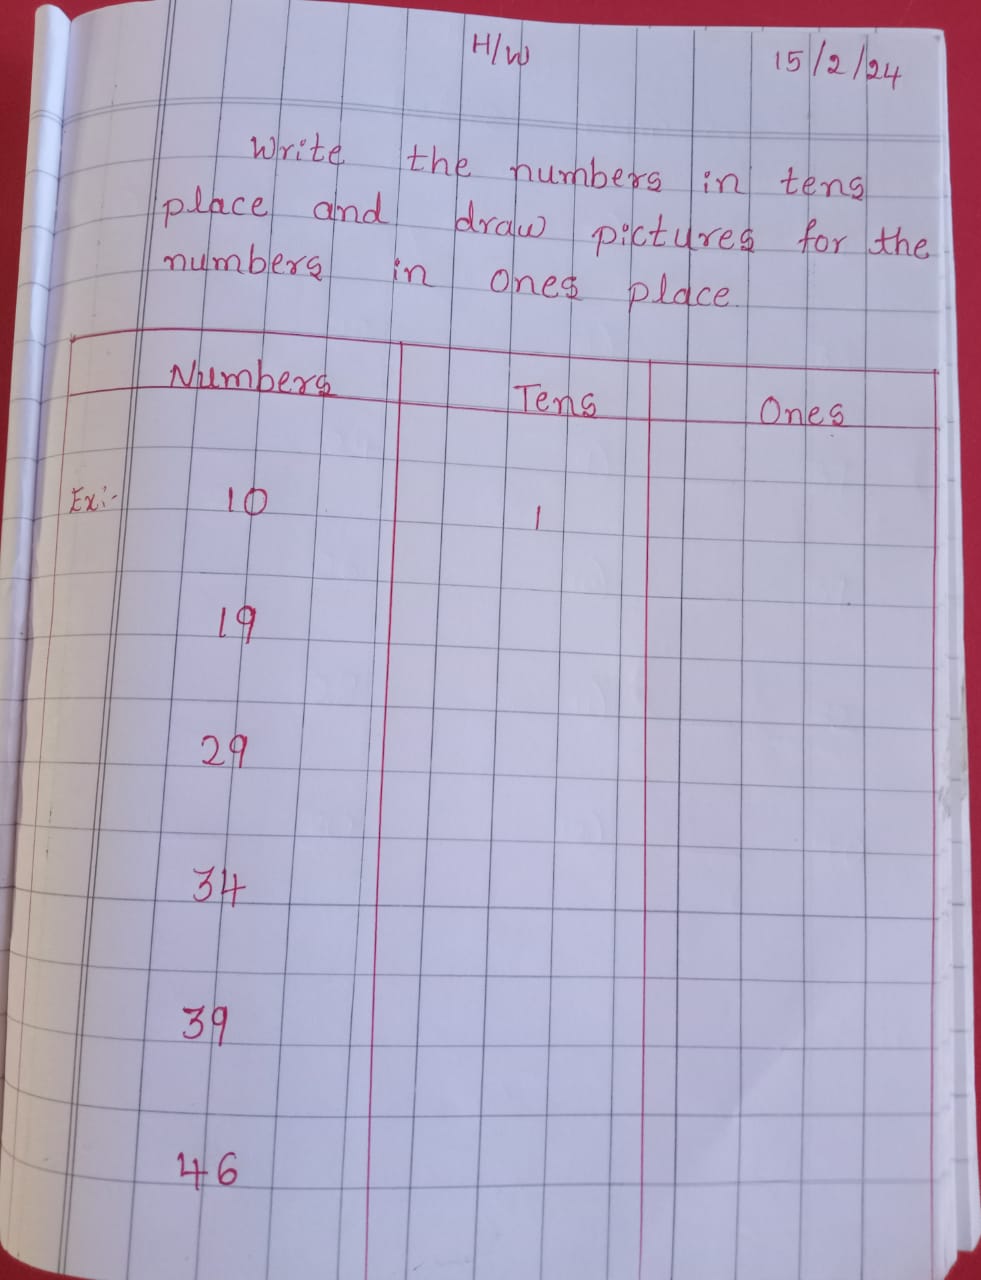 H/W 15/2/24
Write the numbers in tens
place and draw pictures for the
numbers in ones place.
Numbers Tens Ones
Ex:- 10 1
19
29
34
39
46